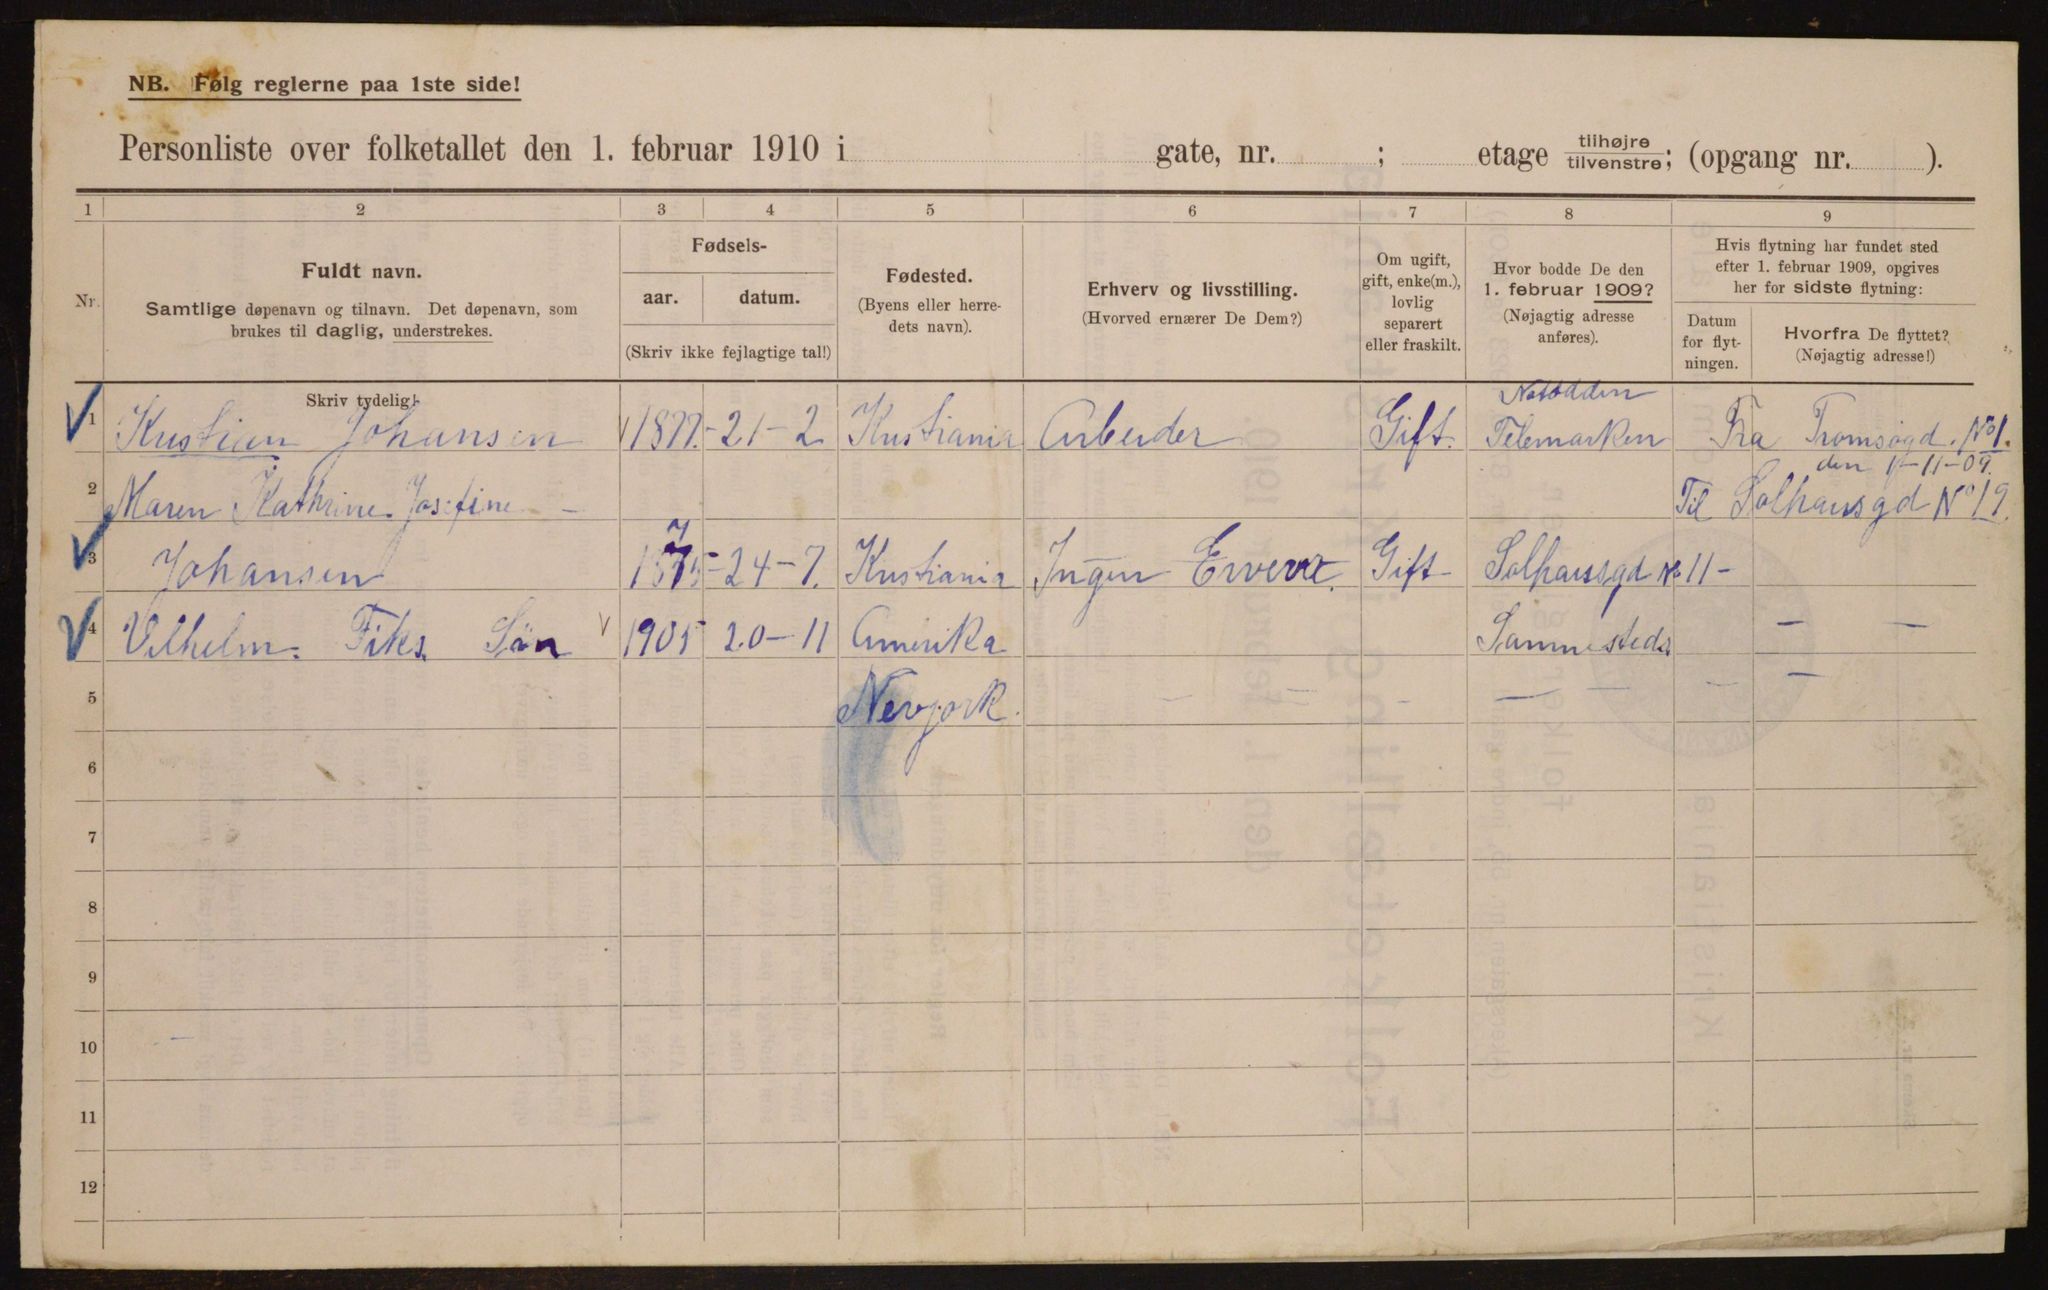 NB. Følg reglerne paa 1ste side!
Personliste over folketallet den 1. februar 1910 i gate, nr. ; etage tilhøjre tilvenstre; (opgang nr. ).
1 2 3 4 5 6 7 8 9
Nr.
Fuldt navn.
Samtlige døpenavn og tilnavn. Det døpenavn, som
brukes til daglig, understrekes.
Skriv tydelig!
Fødsels-
aar. datum.
(Skriv ikke fejlagtige tal!)
Fødested.
(Byens eller herre-
dets navn).
Erhverv og livsstilling.
(Hvorved ernærer De Dem?)
Om ugift,
gift, enke(m.),
lovlig
separert
eller fraskilt.
Hvor bodde De den
1. februar 1909?
(Nøjagtig adresse
anføres).
Hvis flytning har fundet sted
efter 1. februar 1909, opgives
her for sidste flytning:
Datum
for flyt-
ningen.
Hvorfra De flyttet?
(Nøjagtig adresse!)
Notodden
1 Kristian Johansen 1877 - 21 - 2 Kristiania Arbeider Gift. Telemarken Fra Tromsøgd. No 1.
den 1 - 11 - 09.
2 Maren Kathrine Josefine - Til Solhausgd No 19.
3 Johansen 24 - 7. Kristiania Ingen Erverv. Gift Solhausgd No 11 -
4 Vilhelm. Fiks. Sön 1905 20 - 11 Amerika Sammesteds - -
5 Nevjork. - - - - - - -
6
7
8
9
10
11
12